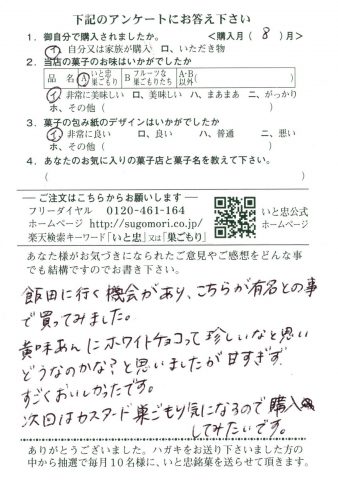 下記のアンケートにお答え下さい
1．御自分で購入されましたか。　＜購入月（ 8 ）月＞
イ、自分又は家族が購入　ロ、いただき物
2．当店の菓子のお味はいかがでしたか
品名　A いと忠巣ごもり　B フルーツな巣ごもりたち　A・B以外（　）
イ、非常に美味しい　ロ、美味しい　ハ、まあまあ　ニ、がっかり
ホ、その他（　）
3．菓子の包み紙のデザインはいかがでしたか
イ、非常に良い　ロ、良い　ハ、普通　ニ、悪い
ホ、その他（　）
4．あなたのお気に入りの菓子店と菓子名を教えて下さい。
（　）
―ご注文はこちらからお願いします―
フリーダイヤル　0120-461-164
ホームページ　http://sugomori.co.jp/
楽天検索キーワード「いと忠」又は「巣ごもり」
いと忠公式
ホームページ
あなた様がお気づきになられたご意見やご感想をどんな事
でも結構ですのでお書き下さい。
飯田に行く機会があり、こちらが有名との事
で買ってみました。
黄味あんにホワイトチョコって珍しいなと思い
どうなのかな？と思いましたが甘すぎず
すごくおいしかったです。
次回はカスタード巣ごもり気になるので購入
してみたいです。
ありがとうございました。ハガキをお送り下さいました方の
中から抽選で毎月10名様に、いと忠銘菓を送らせて頂きます。